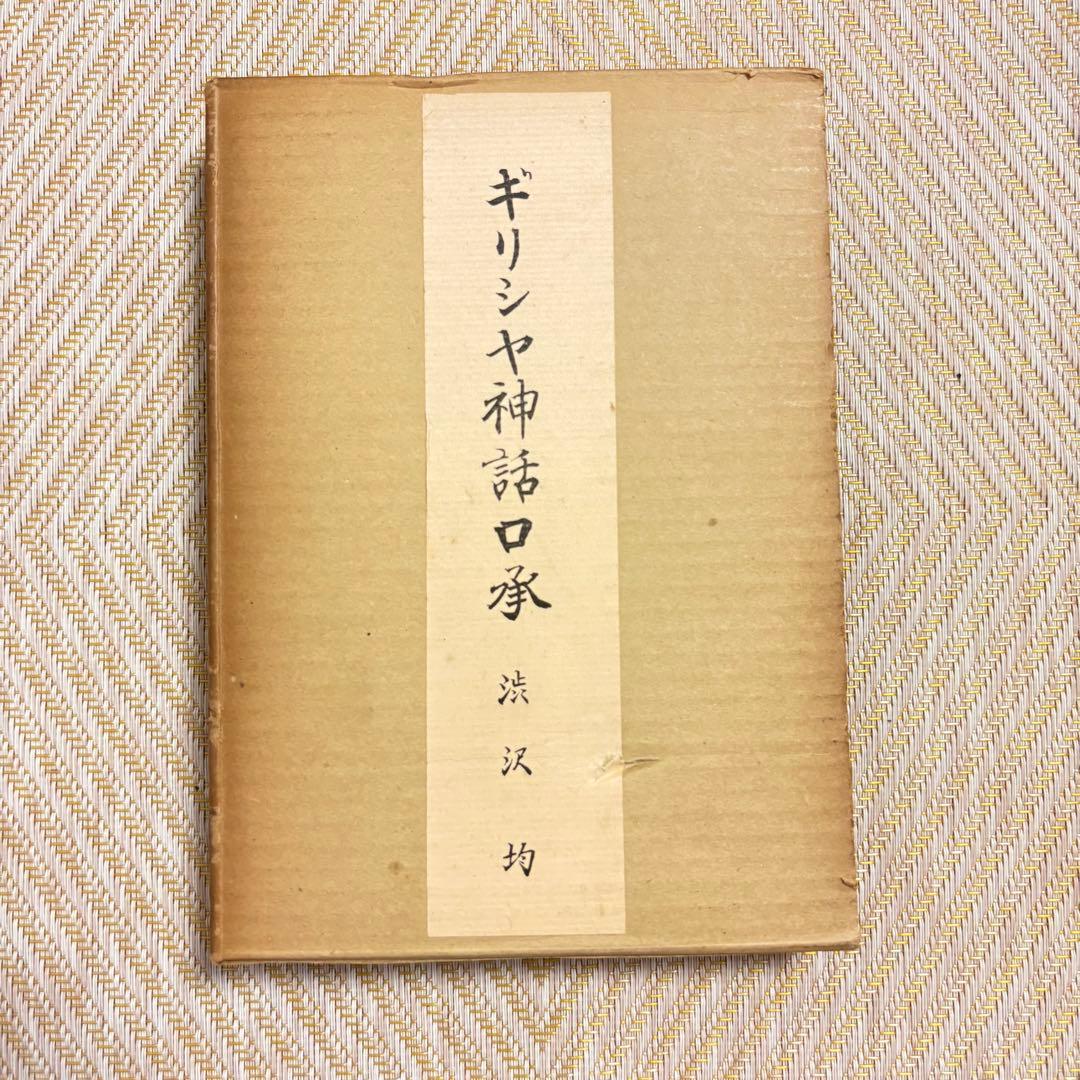 ギリシヤ神話口承
渋沢均